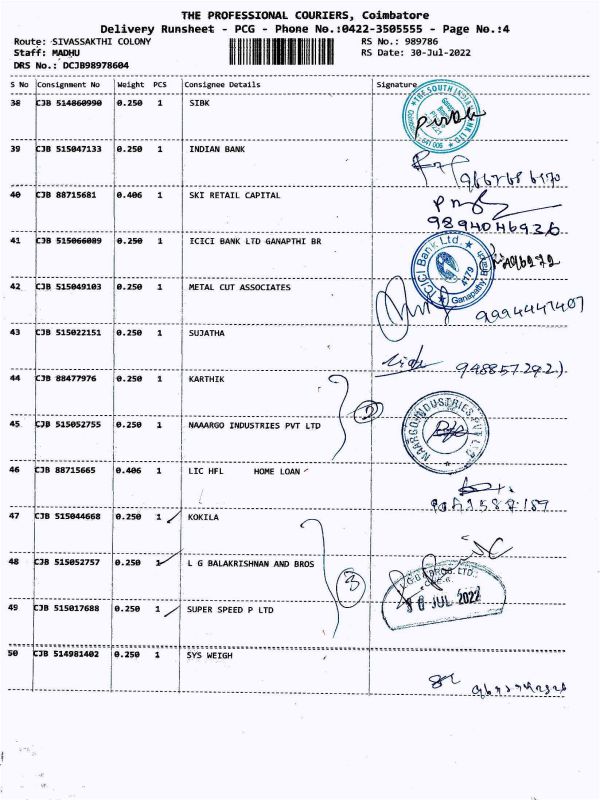 THE PROFESSIONAL COURIERS, Coimbatore
Delivery Runsheet - PCG - Phone No.:0422-3505555 - Page No.:4
Route: SIVASSAKTHI COLONY RS No.: 989786
Staff: MADHU RS Date: 30-Jul-2022
DRS No.: DCJB98978604
S No Consignment No Weight PCS Consignee Details Signature
38 CJB 514860990 0.250 1 SIBK
39 CJB 515047133 0.250 1 INDIAN BANK
40 CJB 88715681 0.406 1 SKI RETAIL CAPITAL
9894046936
41 CJB 515066089 0.250 1 ICICI BANK LTD GANAPTHI BR
ICICI Bank Ltd.
4179
42 CJB 515049103 0.250 1 METAL CUT ASSOCIATES
9994447407
43 CJB 515022151 0.250 1 SUJATHA
44 CJB 88477976 0.250 1 KARTHIK
45 CJB 515052755 0.250 1 NAAARGO INDUSTRIES PVT LTD
NAARGO INDUSTRIES PVT LTD
46 CJB 88715665 0.406 1 LIC HFL HOME LOAN
47 CJB 515044668 0.250 1 KOKILA
48 CJB 515052757 0.250 1 L G BALAKRISHNAN AND BROS
3
49 CJB 515017688 0.250 1 SUPER SPEED P LTD
JUL 2022
50 CJB 514981402 0.250 1 SYS WEIGH